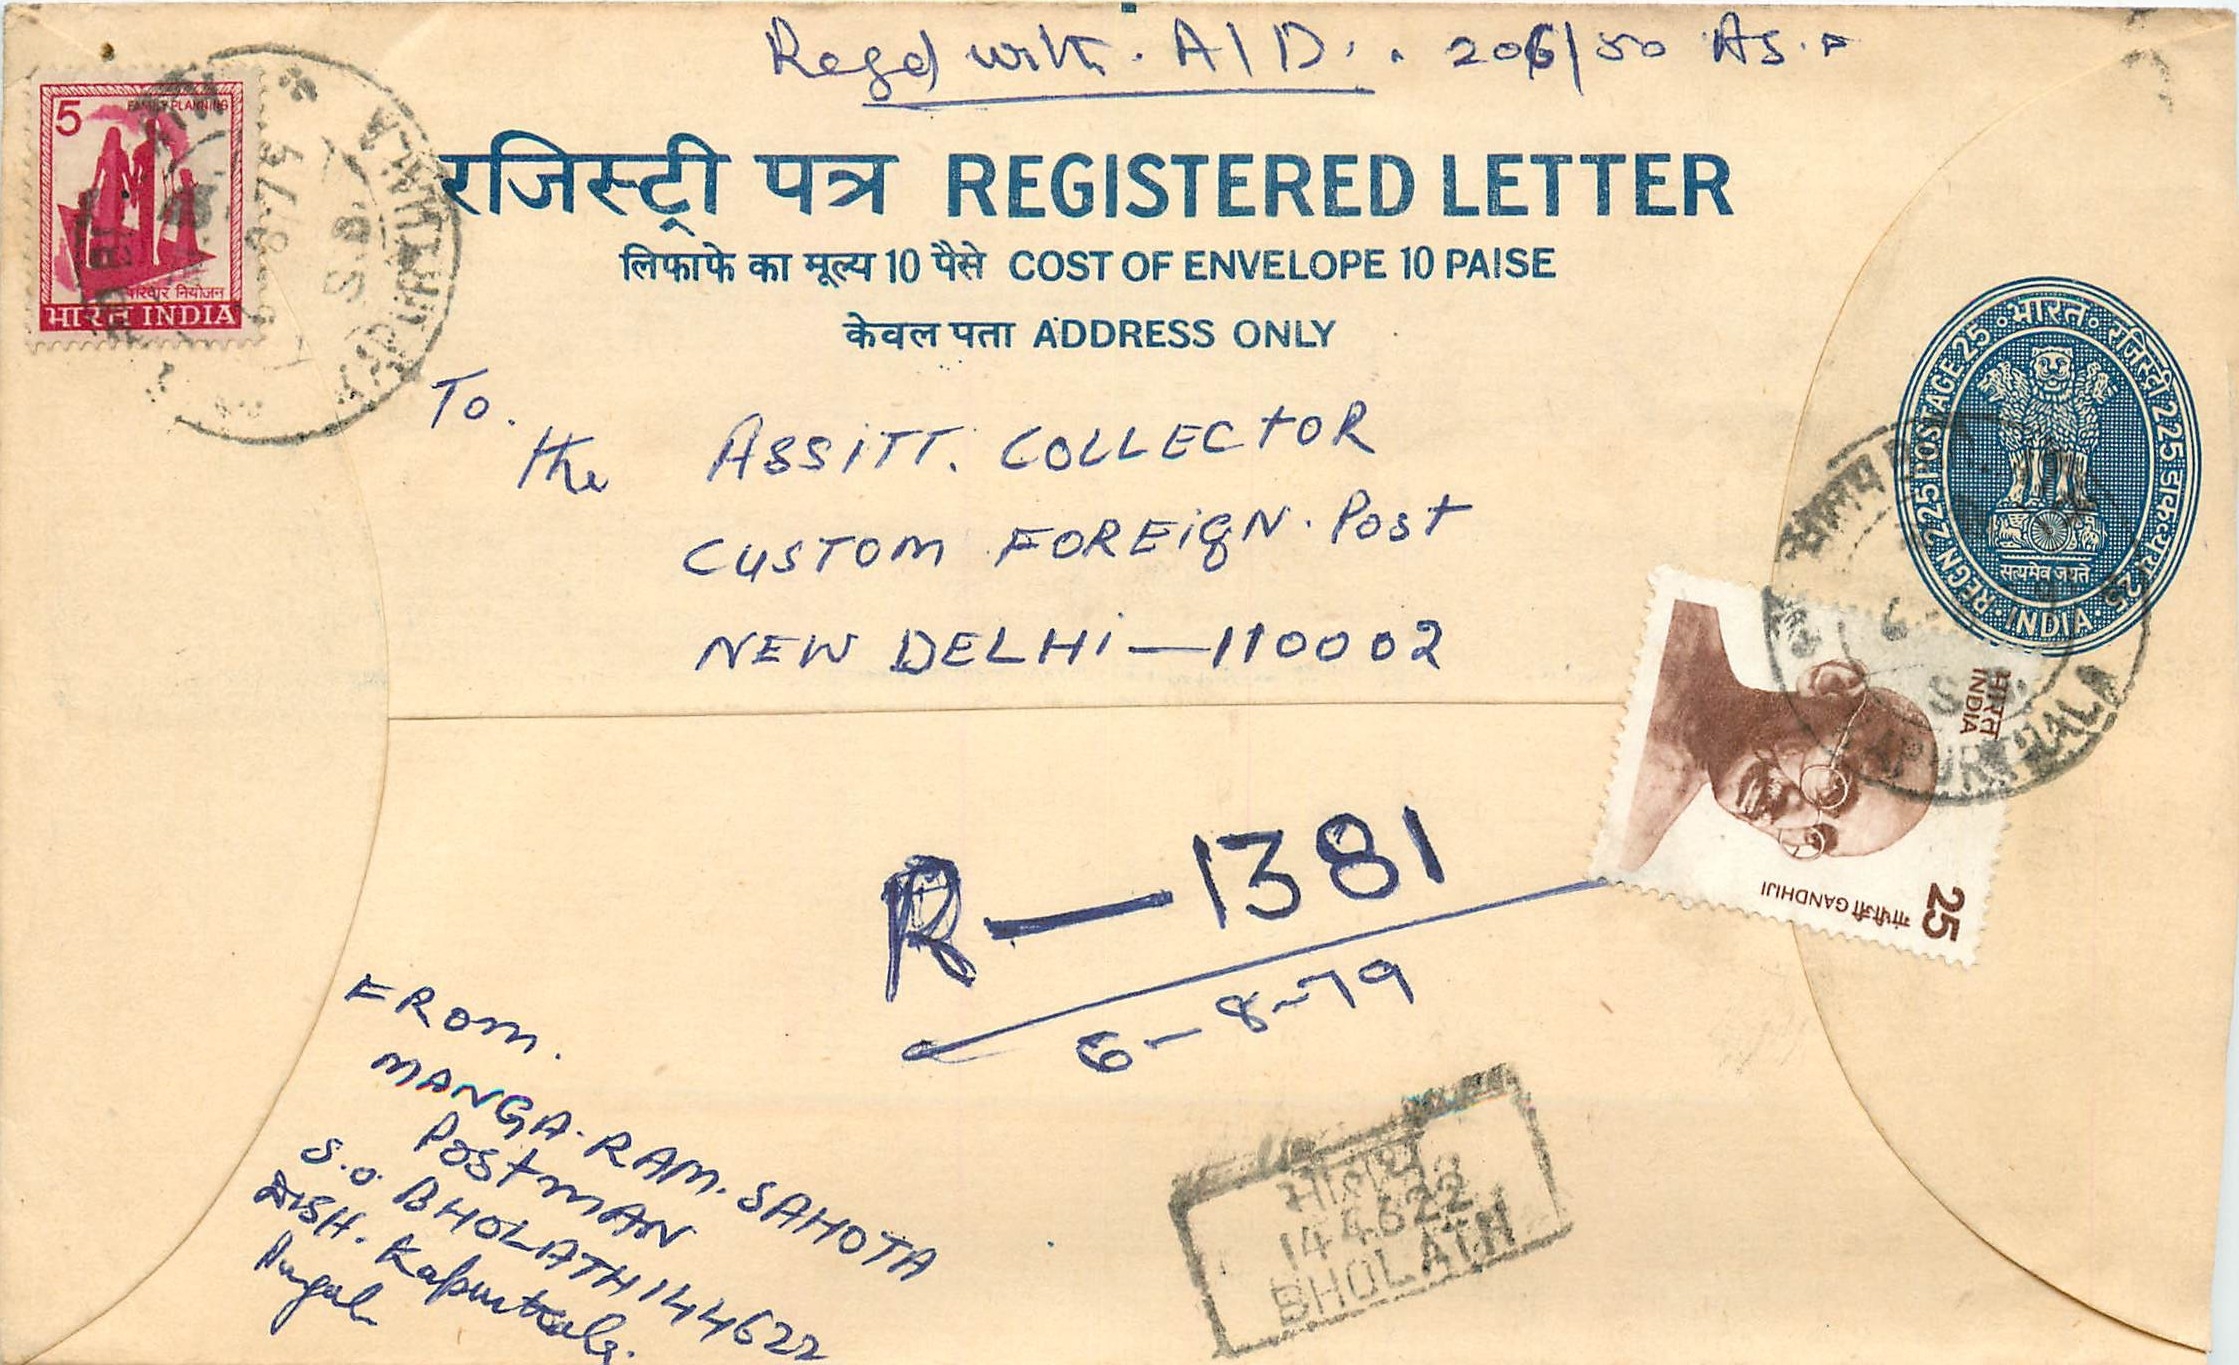 Regd with. A/D. . 206/50
5
FAMILY PLANNING
परिवार नियोजन
भारत INDIA
रजिस्ट्री पत्र REGISTERED LETTER
लिफाफे का मूल्य 10 पैसे COST OF ENVELOPE 10 PAISE
केवल पता ADDRESS ONLY
6.8.79
S.B.
KAPURTHALA
भारत रजिस्ट्री 225 डाकव्यय 25
REGN 225 POSTAGE 25
सत्यमेव जयते
INDIA
To.
the ASSITT. COLLECTOR
CUSTOM FOREIGN. Post
NEW DELHI—110002
भारत
INDIA
गांधीजी GANDHIJI
25
KAPURTHALA
R—1381
6-8-79
FROM.
MANGA. RAM. SAHOTA
POSTMAN
S.O. BHOLATH 144622
DISH. Kapurthala.
144622
BHOLATH